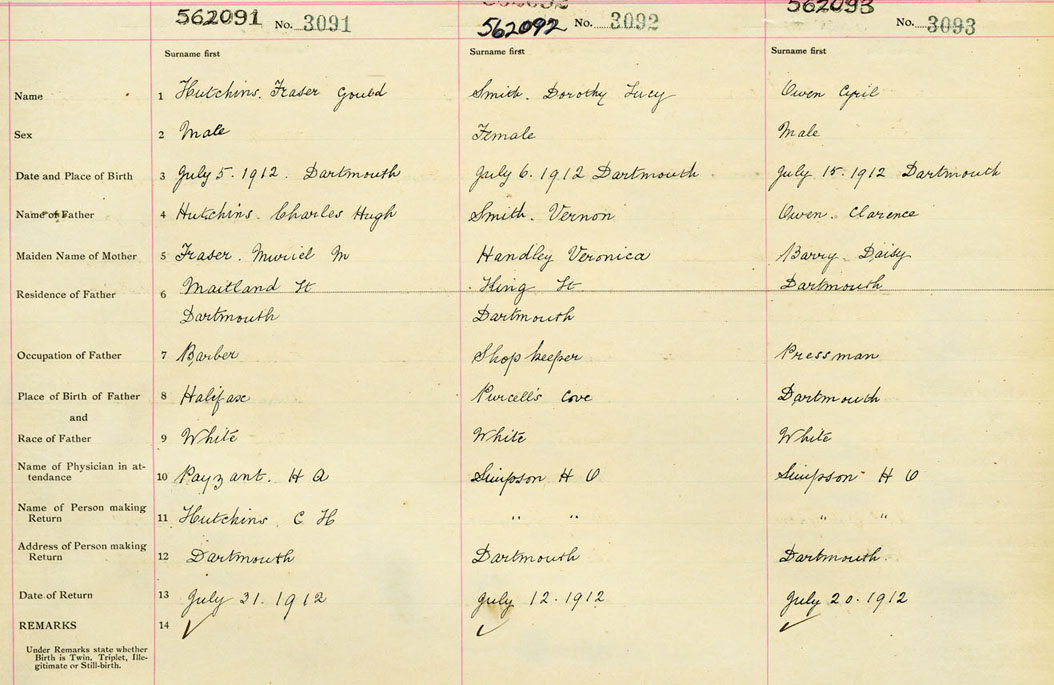 562091 No. 3091 562092 No. 3092 562093 No. 3093
Surname first Surname first Surname first
Name 1 Hutchins. Fraser Gould Smith. Dorothy Lucy Owen Cyril
Sex 2 Male Female Male
Date and Place of Birth 3 July 5. 1912. Dartmouth July 6. 1912 Dartmouth July 15. 1912 Dartmouth
Name of Father 4 Hutchins. Charles Hugh Smith. Vernon Owen. Clarence
Maiden Name of Mother 5 Fraser. Muriel M Handley Veronica Barry Daisy
Residence of Father 6 Maitland St King St Dartmouth
Dartmouth Dartmouth
Occupation of Father 7 Barber Shop keeper Pressman
Place of Birth of Father 8 Halifax Purcell's Cove Dartmouth
and
Race of Father 9 White White White
Name of Physician in at-
tendance 10 Payzant. H A Simpson H O Simpson H O
Name of Person making
Return 11 Hutchins. C H " " " "
Address of Person making
Return 12 Dartmouth Dartmouth Dartmouth.
Date of Return 13 July 31. 1912 July 12. 1912 July 20. 1912
REMARKS 14 ✓ ✓ ✓
Under Remarks state whether
Birth is Twin, Triplet, Ille-
gitimate or Still-birth.